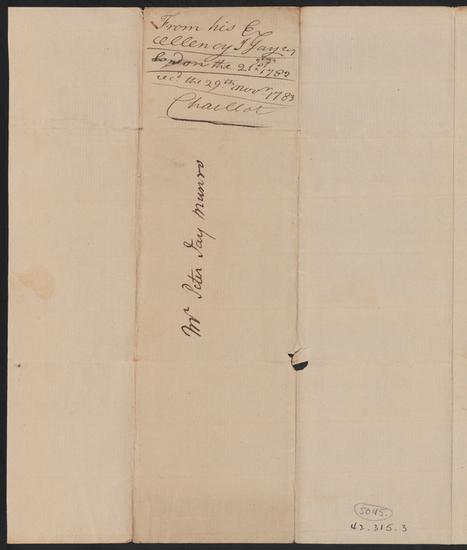 From his E
xcellency J Jay Esqr
London the 21st Novr 1783
recd. the 29th. Novr. 1783
Chaillot
Mr. Peter Jay Munro
5045.
42.315.3